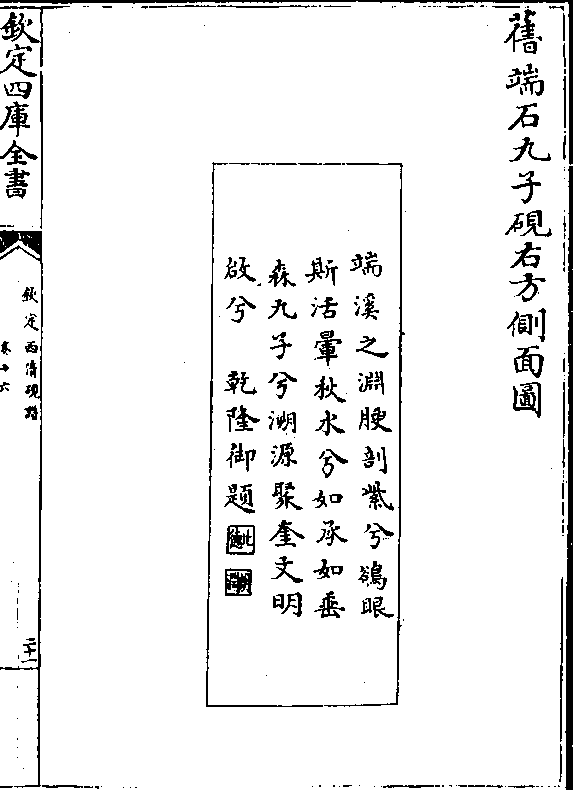 舊端石九子硯右方側面圖
端溪之淵腴剖紫兮鴝眼
斯活暈秋水兮如承如垂
森九子兮溯源聚奎文明
啟兮 乾隆御題
欽定四庫全書
欽定西清硯譜
卷十六
二十一